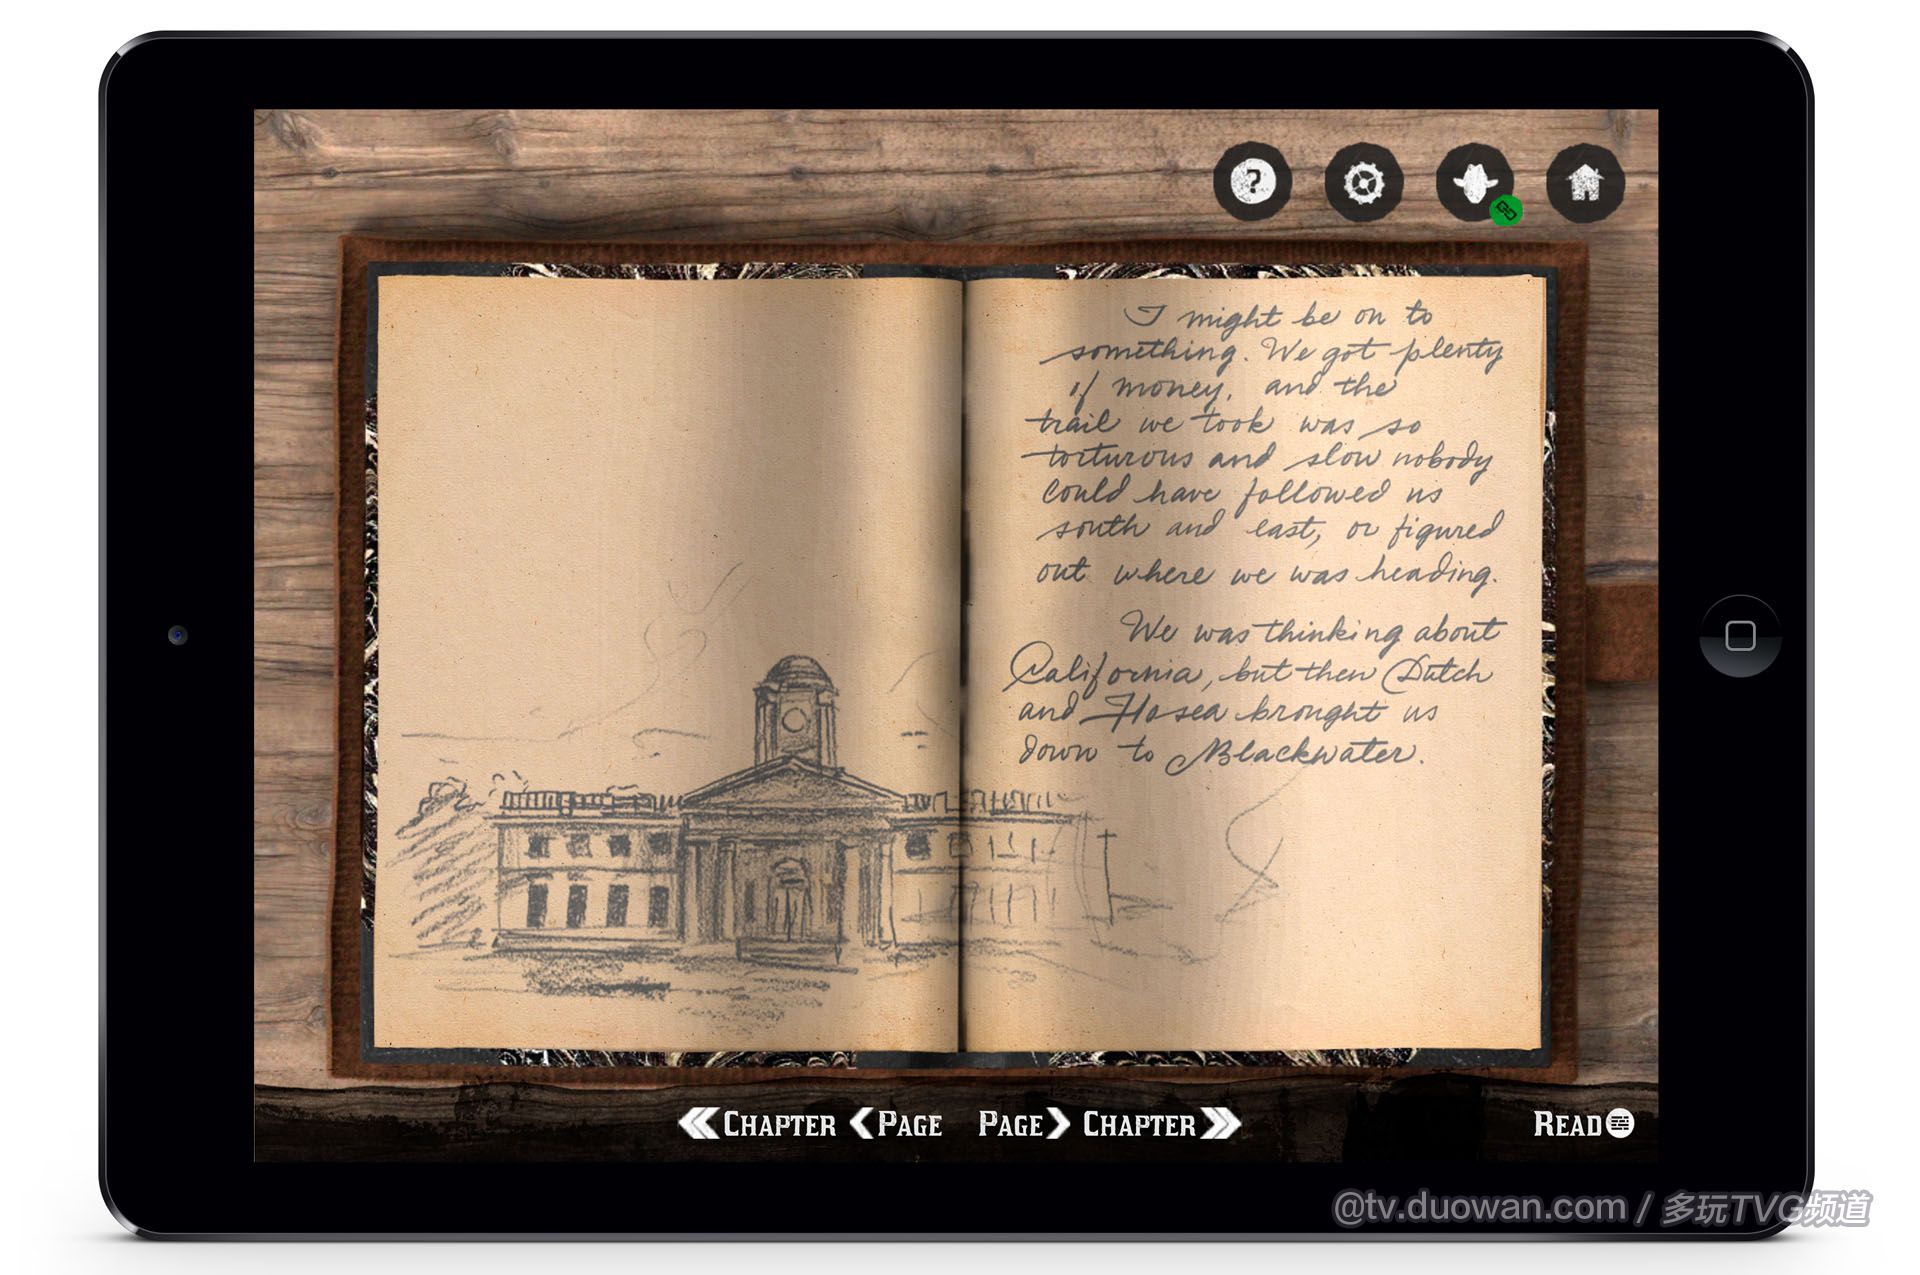 ?
I might be on to
something. We got plenty
of money, and the
trail we took was so
torturous and slow nobody
could have followed us
south and east, or figured
out where we was heading.
We was thinking about
California, but then Dutch
and Hosea brought us
down to Blackwater.
CHAPTER PAGE PAGE CHAPTER READ
@tv.duowan.com / 多玩TVG频道